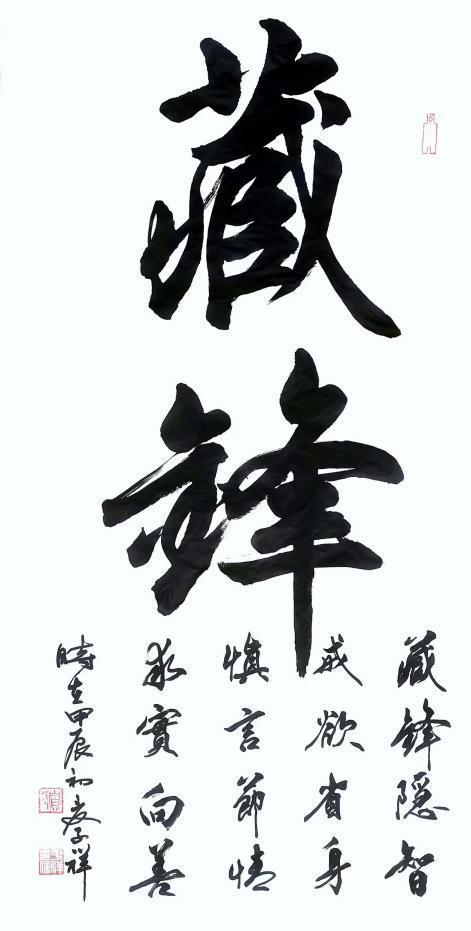 藏
鋒
藏鋒隐智
戒欲省身
慎言節情
求實向善
時在甲辰初夏祥